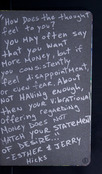 "How Does the thought
feel to you?
you may often say
"I want you want
More Money, but if
you consistently
feel disappointment
or even fear, About
Not HAVING enough,
then your Vibrational
offering regarding
Money Does NOT
MATCH your STATEMENT
OF DESIRE..."
-ESTHER & JERRY
Hicks